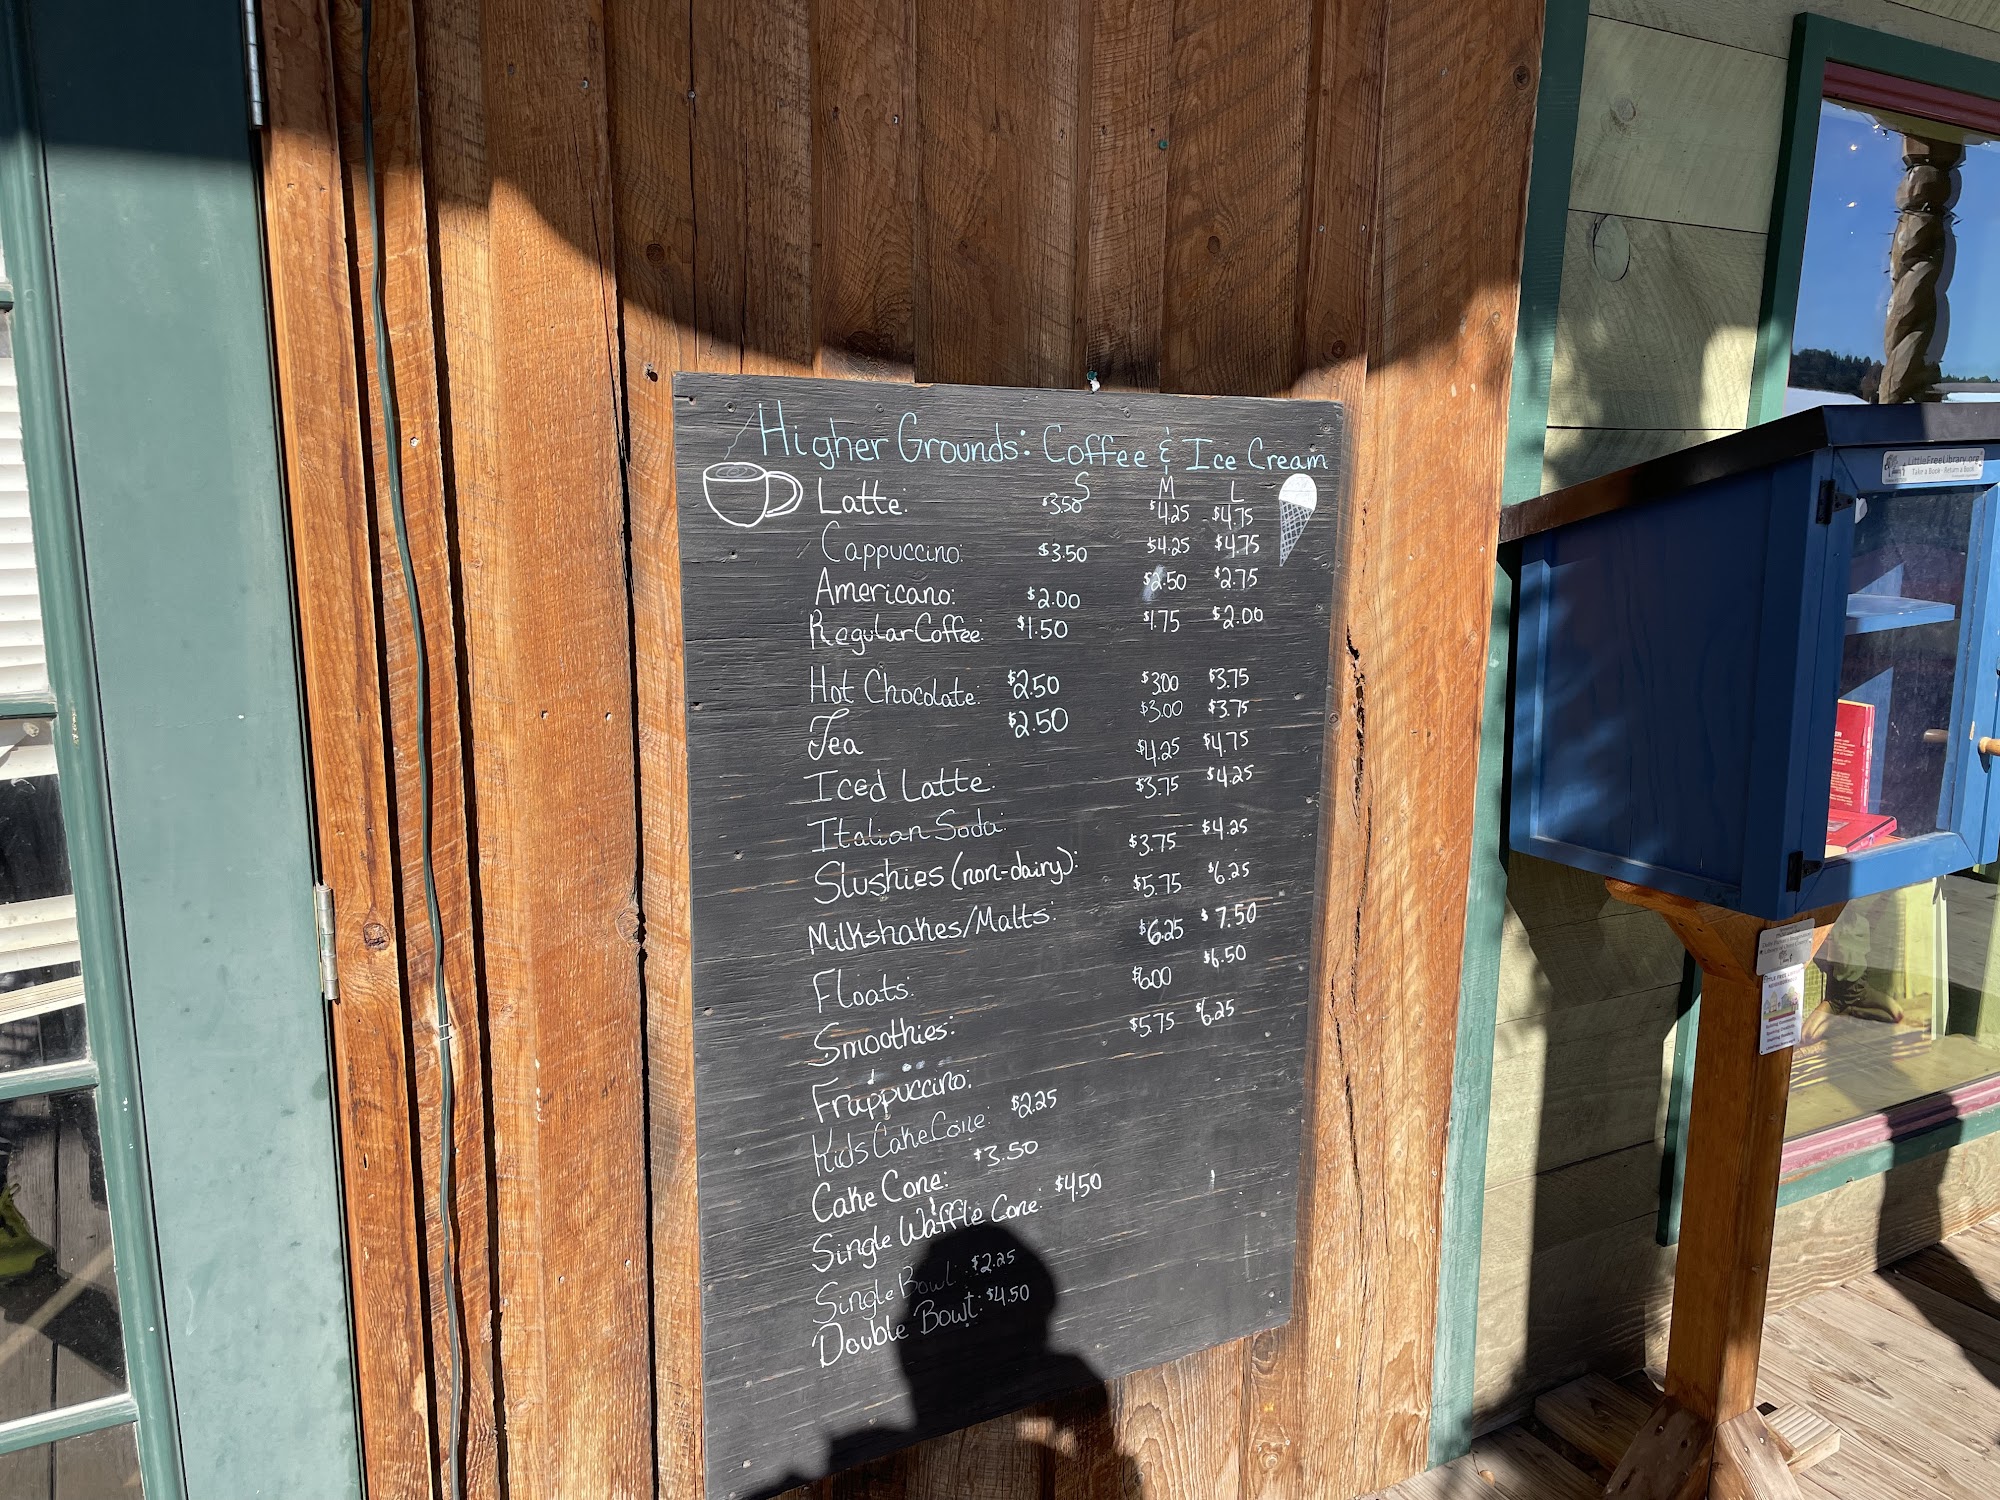 Higher Grounds: Coffee & Ice Cream
S M L
Latte: $3.50 $4.25 $4.75
Cappuccino: $3.50 $4.25 $4.75
Americano: $2.00 $2.50 $2.75
Regular Coffee: $1.50 $1.75 $2.00
Hot Chocolate: $2.50 $3.00 $3.75
Tea $2.50 $3.00 $3.75
Iced Latte: $4.25 $4.75
Italian Soda: $3.75 $4.25
Slushies (non-dairy): $3.75 $4.25
Milkshakes/Malts: $5.75 $6.25
Floats: $6.25 $7.50
Smoothies: $6.00 $6.50
Frappuccino: $5.75 $6.25
Kids Cake Cone: $2.25
Cake Cone: $3.50
Single Waffle Cone: $4.50
Single Bowl: $2.25
Double Bowl: $4.50
LittleFreeLibrary.org
Take a Book · Return a Book